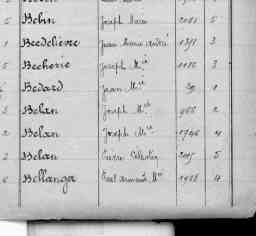 Behn Joseph Marie 2081 5
1 Bedelièvre Jean Marie André 1371 3
5 Becherie Joseph Mie 1182 3
Bedard Jean Mie 1
2 Belan Joseph Mie 966 2
2 Belan Joseph Mie 1746 4
2 Belan Pierre Célestin 2015 5
6 Bellanger Paul Armand Mie 1988 4